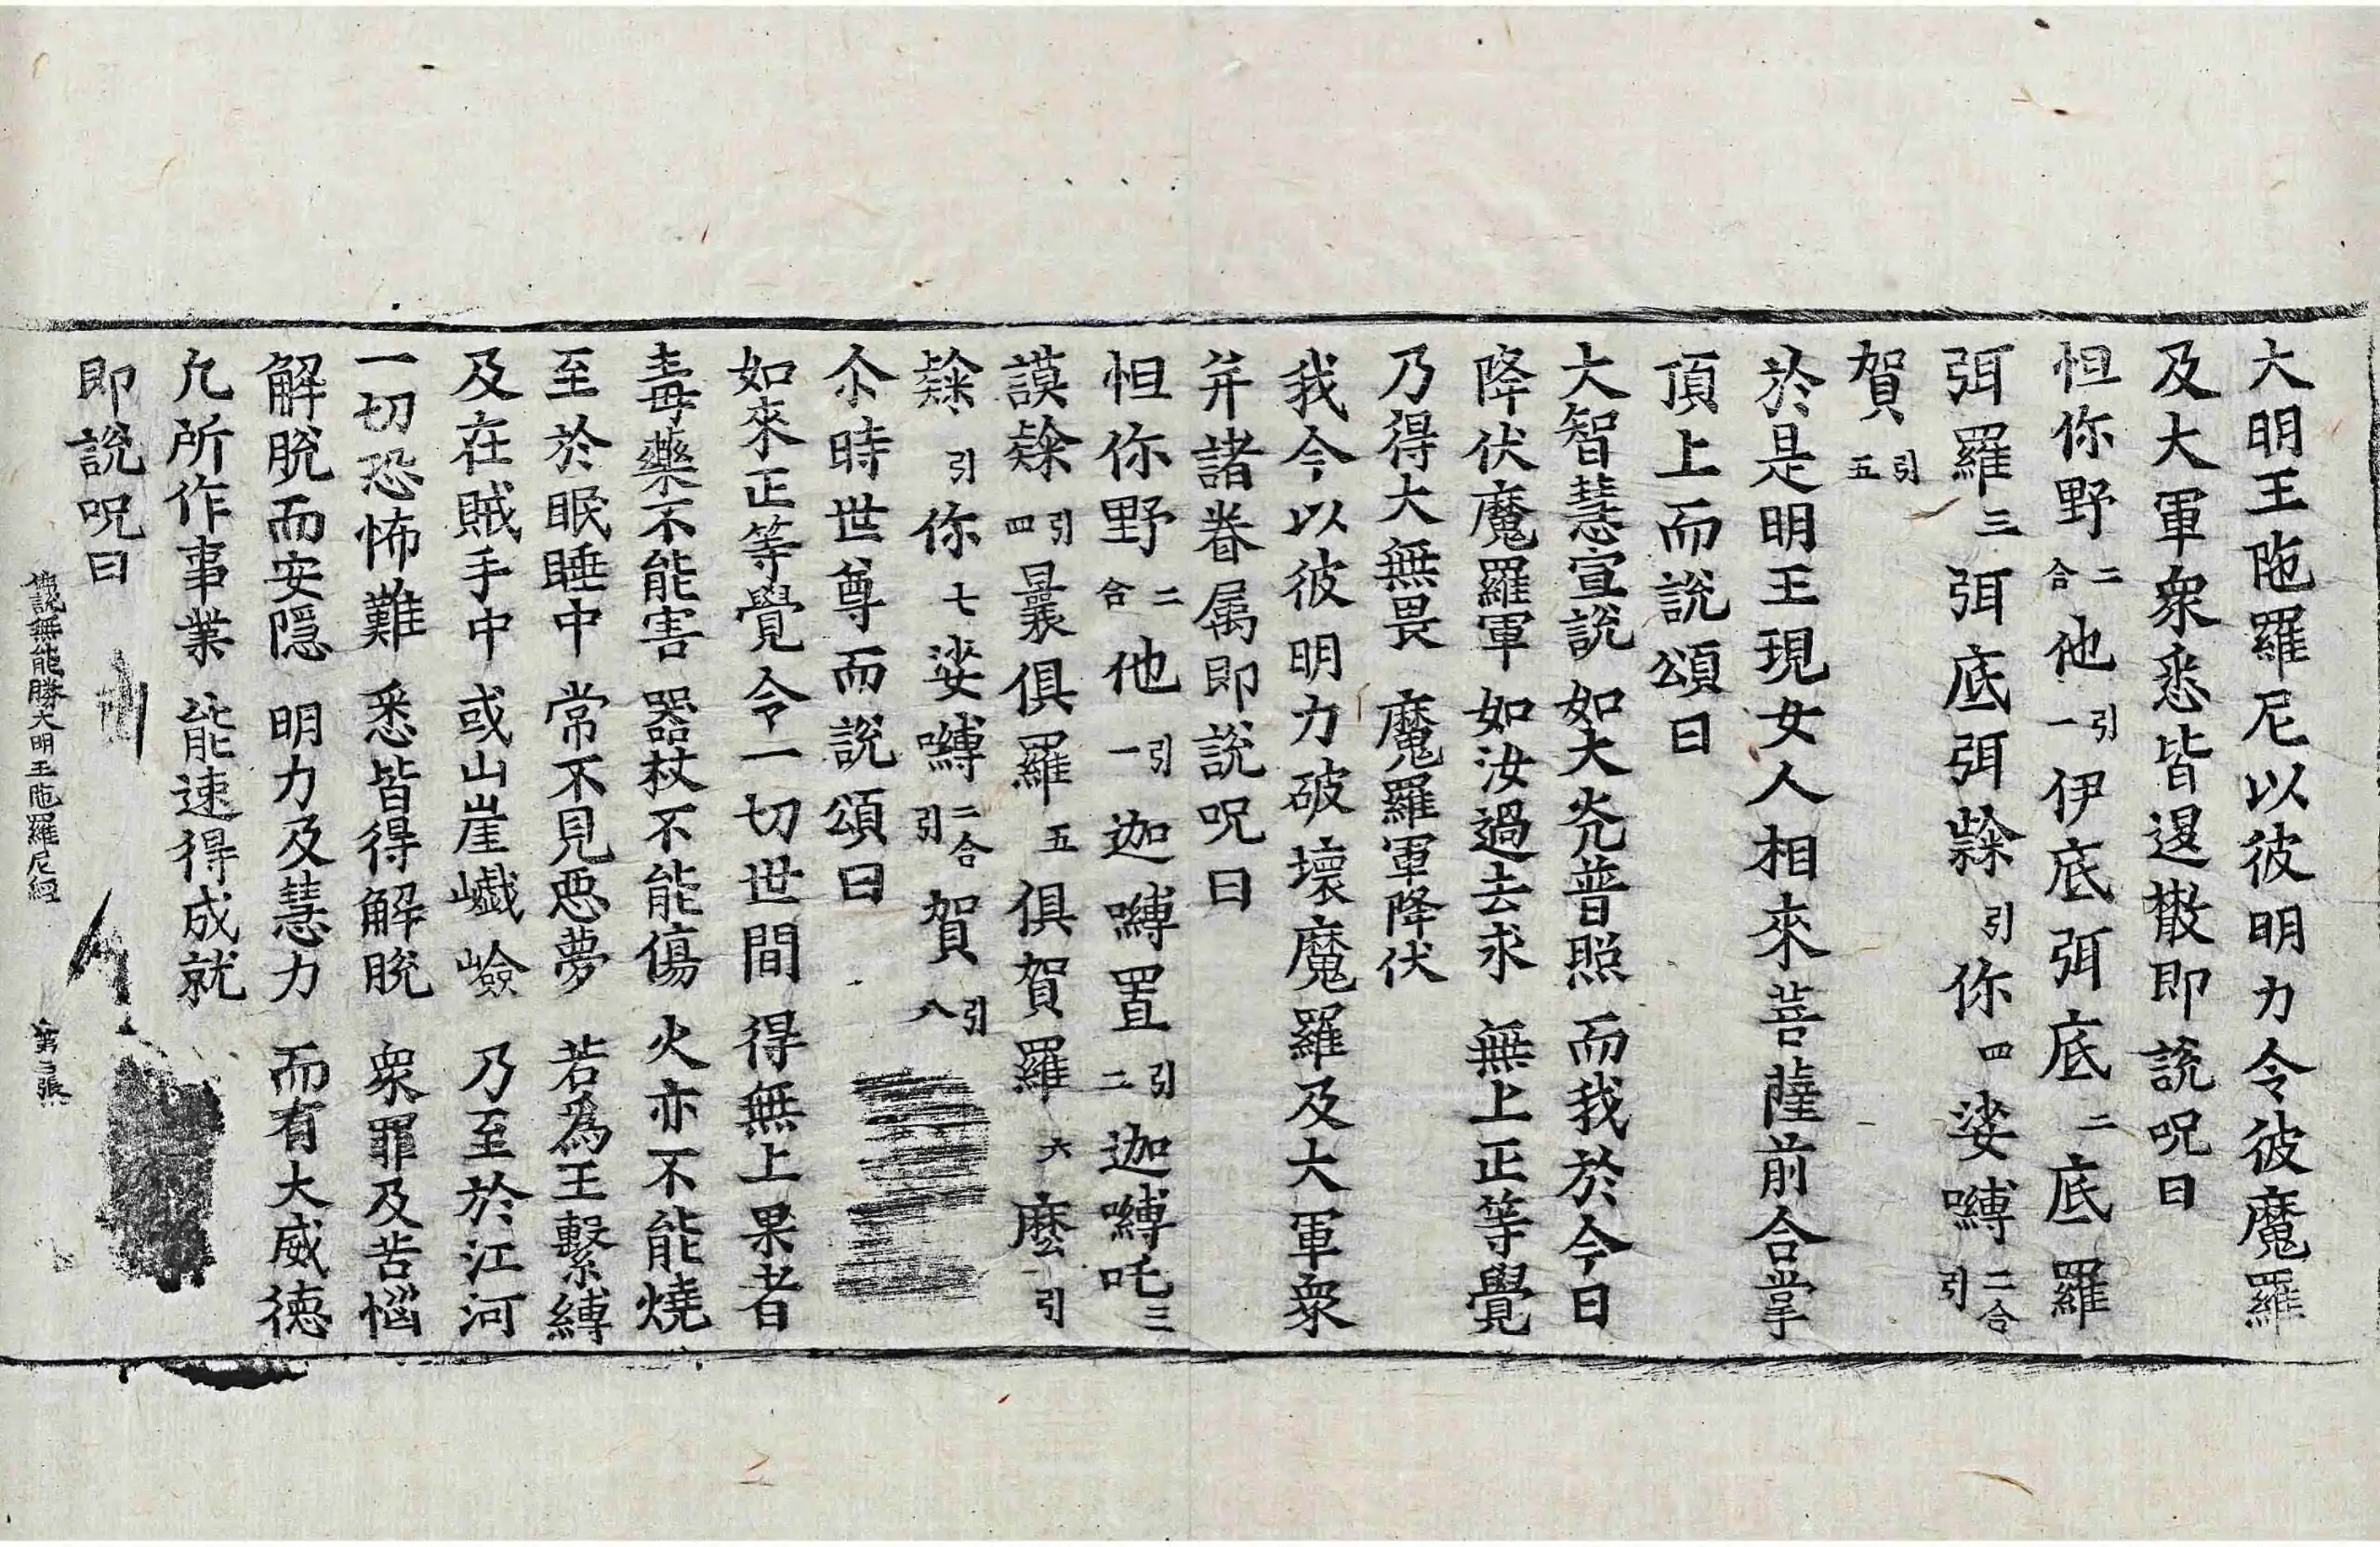 大明王陁羅尼以彼明力令彼魔羅
及大軍衆悉皆退散即說呪曰
怛你野二合他引一伊底弭底二底羅
弭羅三弭底弭隸引你四娑嚩二合引
賀引五
於是明王現女人相來菩薩前合掌
頂上而說頌曰
大智慧宣說 如大光普照 而我於今日
降伏魔羅軍 如汝過去求 無上正等覺
乃得大無畏 魔羅軍降伏
我今以彼明力破壞魔羅及大軍衆
并諸眷属即說呪曰
怛你野二合他引一迦嚩置引二迦嚩吒三
謨隸引四曩俱羅五俱賀羅六麼引
隸引你七娑嚩二合引賀引八
尒時世尊而說頌曰
如來正等覺 令一切世間 得無上果者
毒藥不能害 器杖不能傷 火亦不能燒
至於眠睡中 常不見惡夢 若為王繫縛
及在賊手中 或山崖巇嶮 乃至於江河
一切恐怖難 悉皆得解脫 衆罪及苦惱
解脫而安隱 明力及慧力 而有大威德
凢所作事業 能速得成就
即說呪曰
佛說無能勝大明王陁羅尼經 第三張